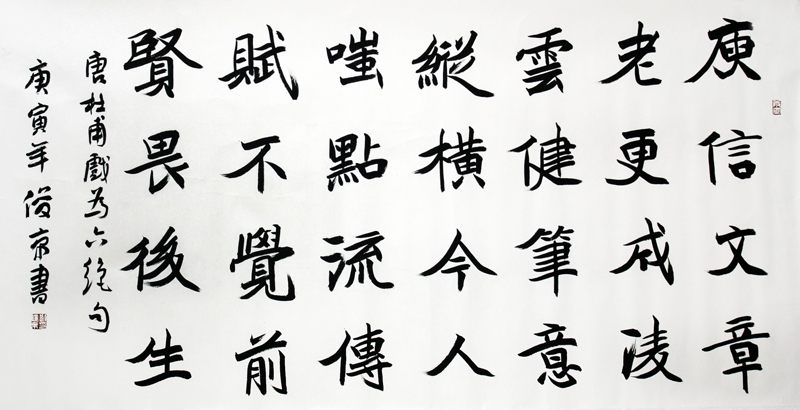 庾信文章
老更成淩
雲健筆意
縱橫今人
嗤點流傳
賦不覺前
賢畏後生
唐杜甫戲為六絕句
庚寅年俊京書